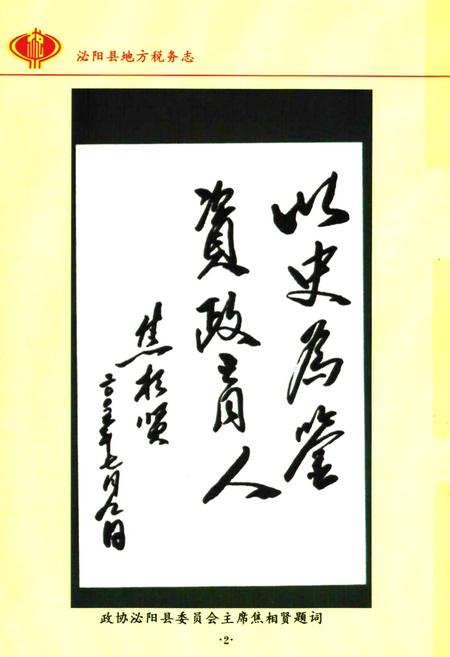 泌阳县地方税务志
以史为鉴
资政育人
焦相贤
二〇〇五年七月九日
政协泌阳县委员会主席焦相贤题词
·2·